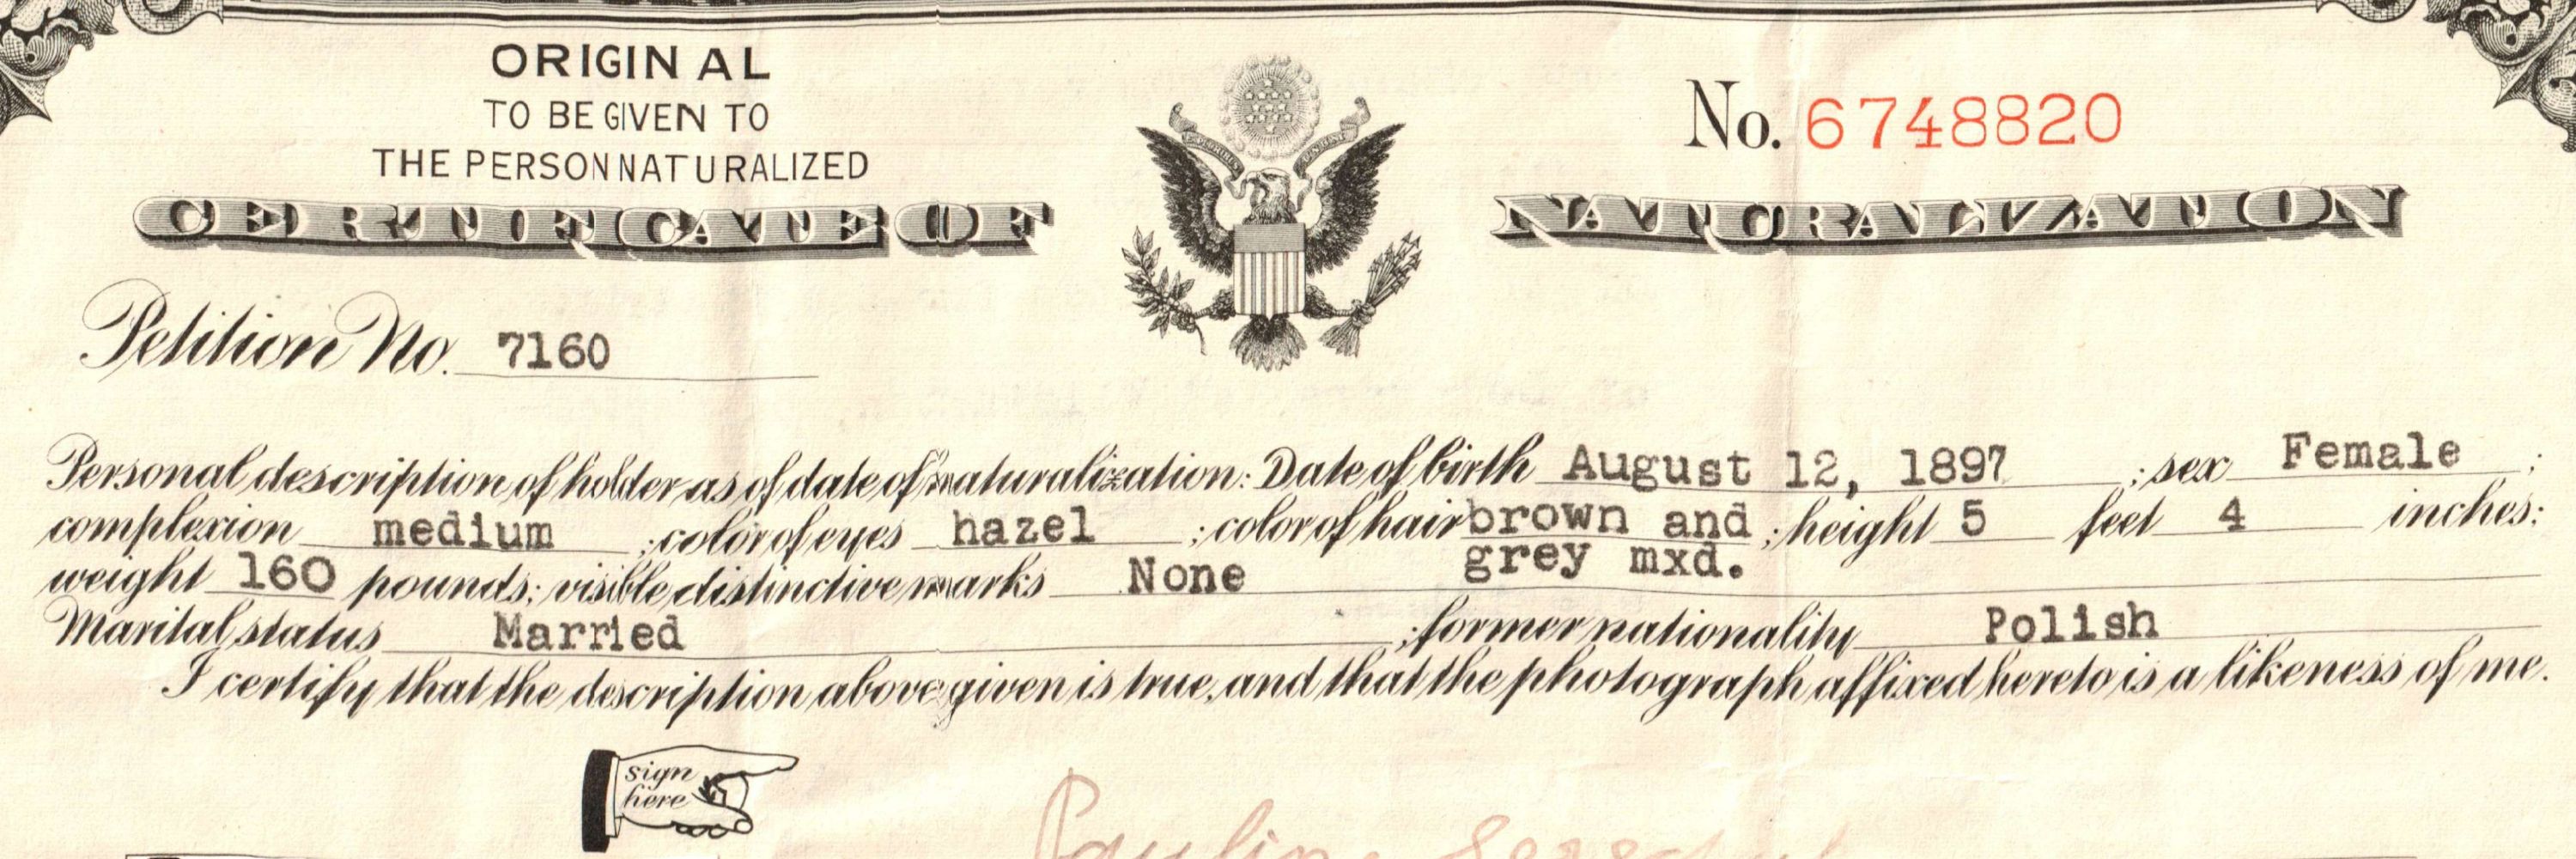 ORIGINAL
TO BE GIVEN TO
THE PERSON NATURALIZED
No. 6748820
CERTIFICATE OF NATURALIZATION
Petition No. 7160
Personal description of holder as of date of naturalization: Date of birth August 12, 1897 ; sex Female ;
complexion medium ; color of eyes hazel ; color of hair brown and ; height 5 feet 4 inches;
grey mxd.
weight 160 pounds; visible distinctive marks None
Marital status Married ; former nationality Polish
I certify that the description above given is true, and that the photograph affixed hereto is a likeness of me.
sign
here
Pauline